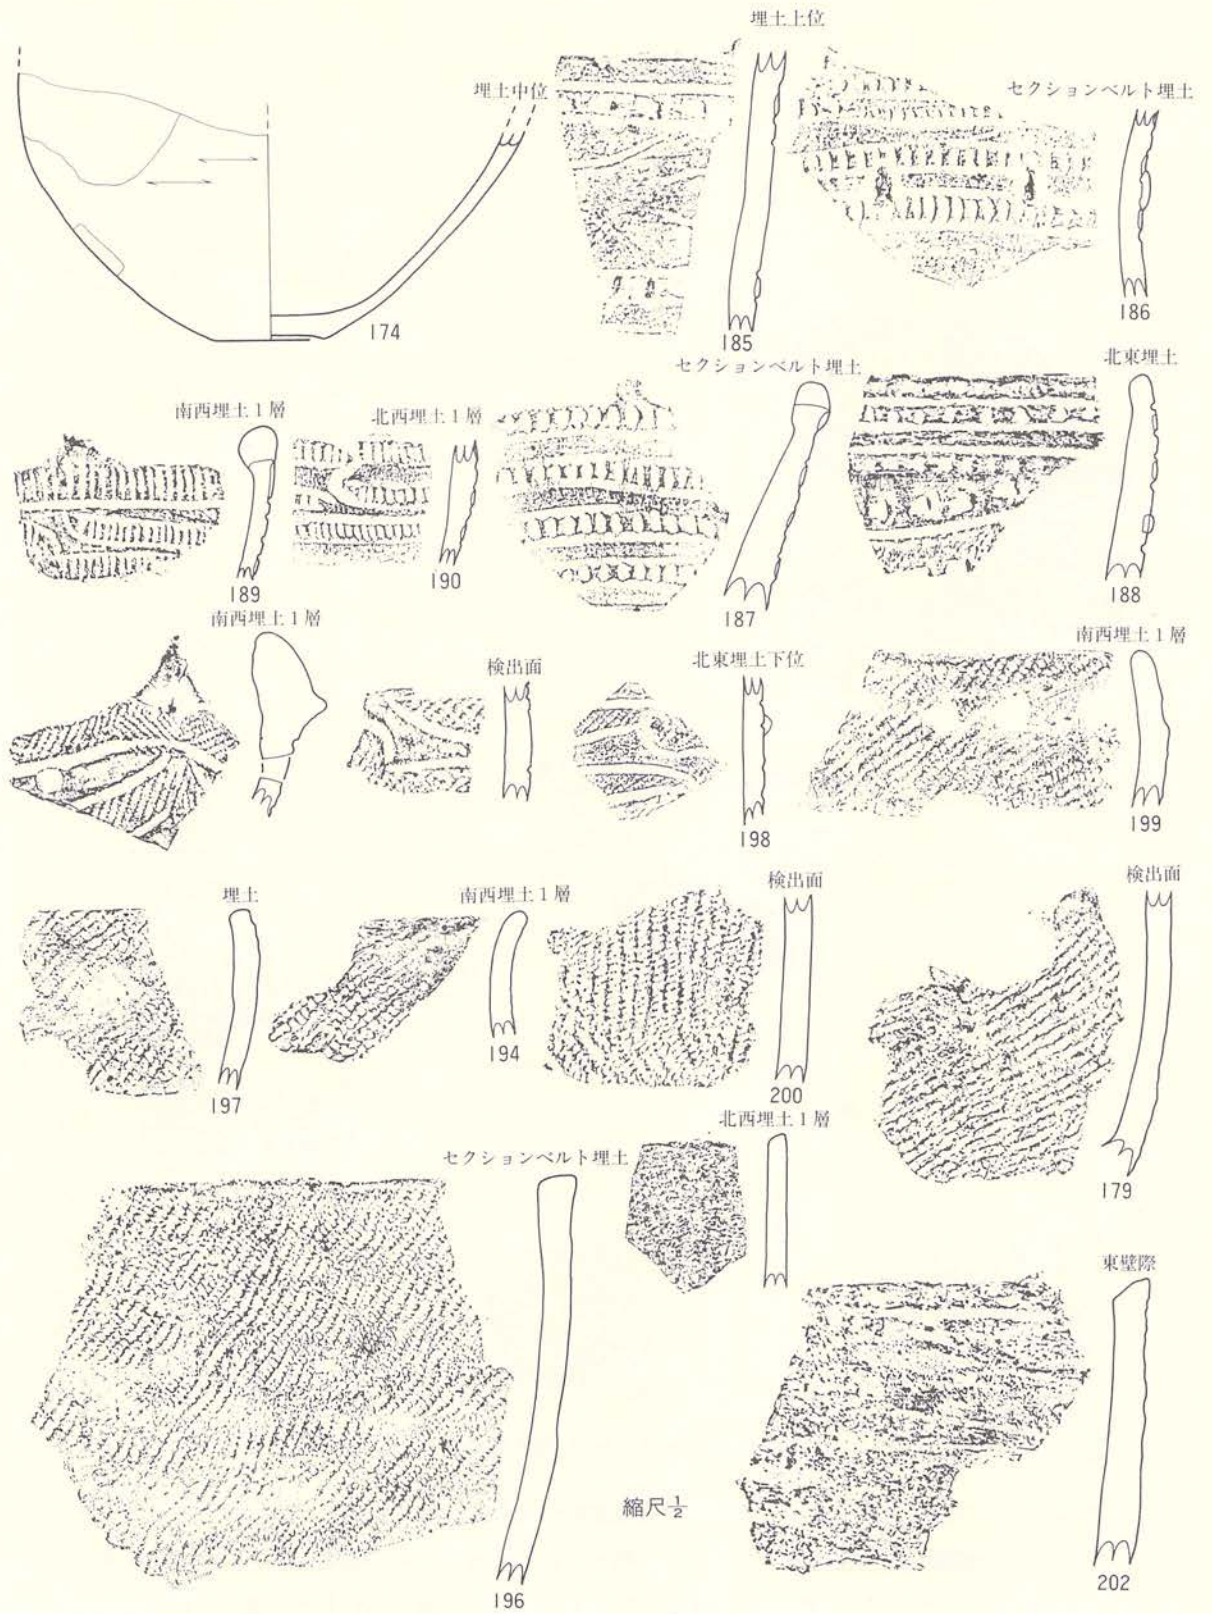 埋土上位
埋土中位
セクションベルト埋土
174
185
186
セクションベルト埋土
北東埋土
南西埋土1層
北西埋土1層
189
190
187
188
南西埋土1層
検出面
北東埋土下位
南西埋土1層
198
199
埋土
南西埋土1層
検出面
検出面
197
194
200
179
北西埋土1層
セクションベルト埋土
東壁際
縮尺1/2
196
202